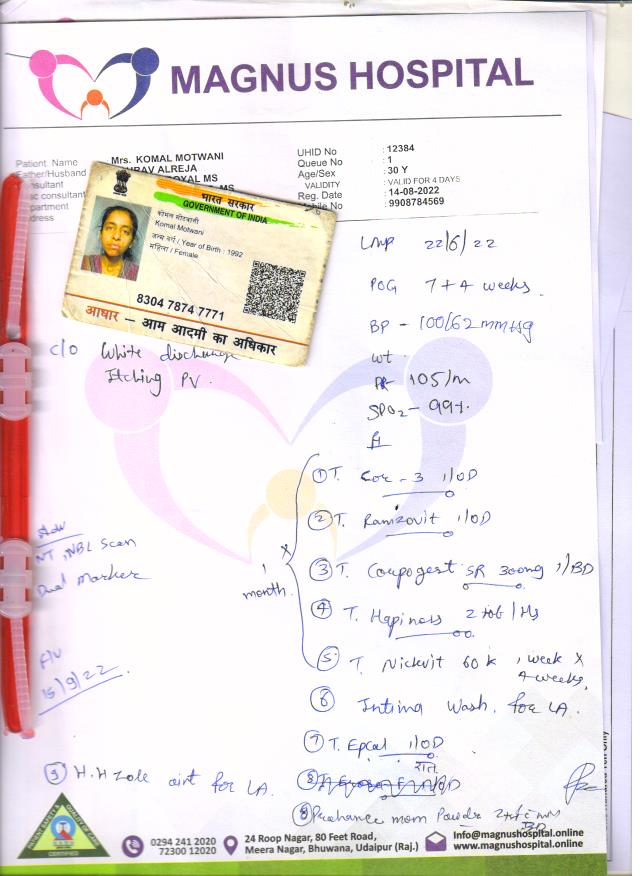 MAGNUS HOSPITAL
Patient Name Mrs. KOMAL MOTWANI
Father/Husband ALREJA
MS
UHID No : 12384
Queue No : 1
Age/Sex : 30 Y
VALIDITY : VALID FOR 4 DAYS
Reg. Date : 14-08-2022
Mobile No : 9908784569
भारत सरकार
GOVERNMENT OF INDIA
कोमल मोटवानी
Komal Motwani
जन्म वर्ष / Year of Birth : 1992
महिला / Female
8304 7874 7771
आधार – आम आदमी का अधिकार
LMP 22/6/22
POG 7+4 weeks.
BP - 100/62 mmHg
wt.
PR 105/m
SPO2 - 99%.
c/o White discharge
Itching PV.
① T. Cox - 3 1/OD
② T. Ramizovit 1/OD
③ T. Coupogest SR 300mg 1/BD
④ T. Hapiness 2 tab / Hs
⑤ T. Nickvit 60 k 1 week x
4 weeks,
x 1 month.
Adv
NT, NBL Scan
Dual Marker
F/U
15/9/22.
⑥ Intima Wash. for LA.
⑦ T. Epcal 1/OD
⑨ H.H Zole oint for LA.
⑧ Prohance mom Powder
BD
CERTIFIED
0294 241 2020
72300 12020
24 Roop Nagar, 80 Feet Road,
Meera Nagar, Bhuwana, Udaipur (Raj.)
Info@magnushospital.online
www.magnushospital.online